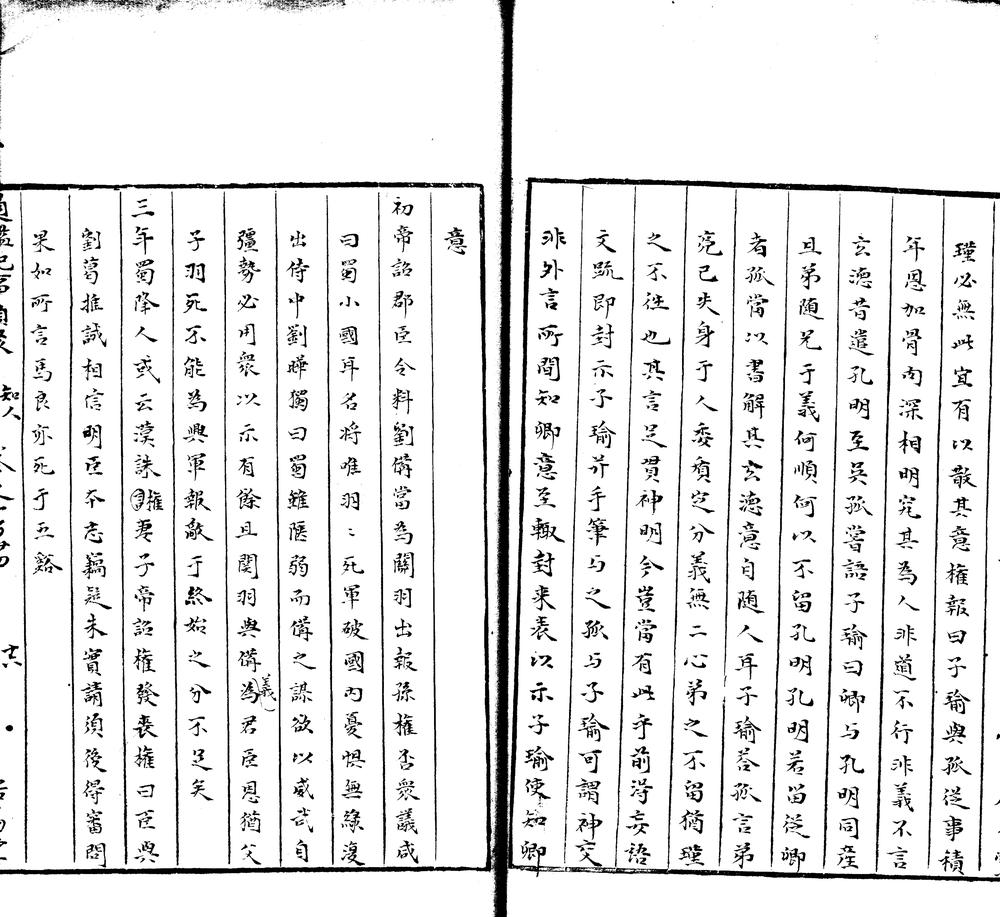 瑾必無此宜有以散其意權報曰子瑜與孤從事積
年恩加骨肉深相明究其為人非道不行非義不言
玄德昔遣孔明至吳孤嘗語子瑜曰卿与孔明同產
且弟隨兄于義何順何以不留孔明孔明若留從卿
者孤當以書解其玄德意自隨人耳子瑜荅孤言弟
亮已失身于人委質定分義無二心弟之不留猶瑾
之不往也其言足貫神明今豈當有此乎前得妄語
文䟽即封示子瑜并手筆与之孤与子瑜可謂神交
非外言所間知卿意至輙封来表以示子瑜使知卿
意
初帝詔郡臣令料劉備當為關羽出報孫權否衆議咸
曰蜀小國耳名将唯羽〻死軍破國内憂惧無緣復
出侍中劉曄獨曰蜀雖陿弱而備之謀欲以威武自
彊勢必用衆以示有餘且関羽與備義為君臣恩猶父
子羽死不能為興軍報敵于終始之分不足矣
三年蜀降人或云漢誅權妻子帝詔權發喪權曰臣與
劉葛推誠相信明臣夲志竊疑未實請須後得審問
果如所言馬良亦死于五谿
知人